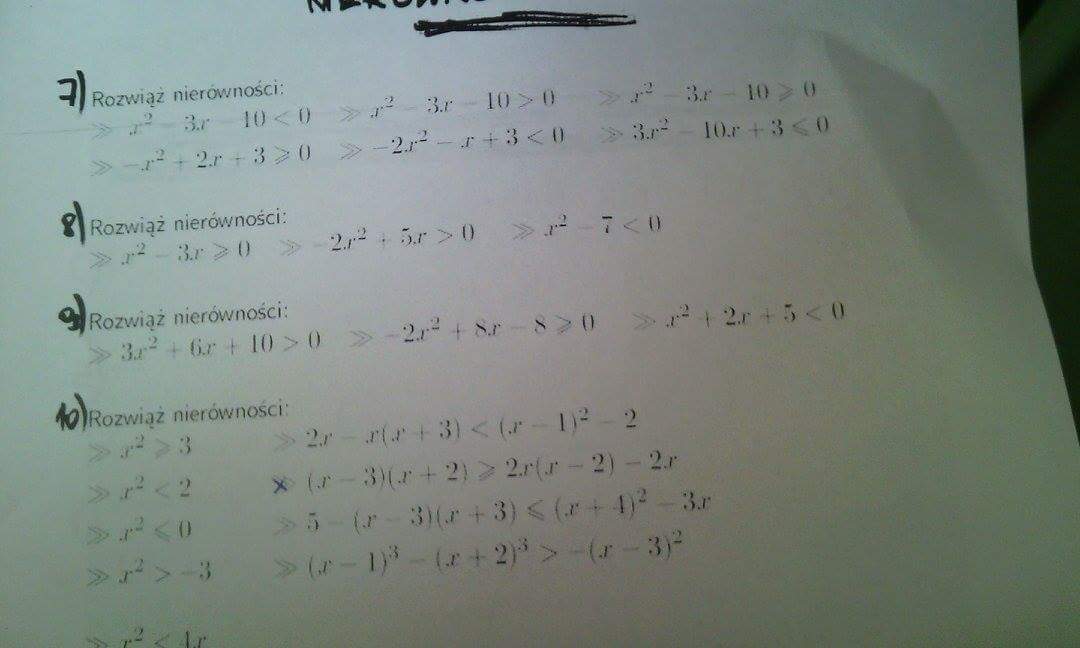 7) Rozwiąż nierówności:
≫ x² − 3x − 10 < 0 ≫ x² − 3x − 10 > 0 ≫ x² − 3x − 10 ⩾ 0
≫ −x² + 2x + 3 ⩾ 0 ≫ −2x² − x + 3 < 0 ≫ 3x² − 10x + 3 ⩽ 0
8) Rozwiąż nierówności:
≫ x² − 3x ⩾ 0 ≫ −2x² + 5x > 0 ≫ x² − 7 < 0
9) Rozwiąż nierówności:
≫ 3x² + 6x + 10 > 0 ≫ −2x² + 8x − 8 ⩾ 0 ≫ x² + 2x + 5 < 0
10) Rozwiąż nierówności:
≫ x² ⩾ 3 ≫ 2x − x(x + 3) < (x − 1)² − 2
≫ x² < 2 ≫ (x − 3)(x + 2) ⩾ 2x(x − 2) − 2x
≫ x² ⩽ 0 ≫ 5 − (x − 3)(x + 3) ⩽ (x + 4)² − 3x
≫ x² > −3 ≫ (x − 1)³ − (x + 2)³ > −(x − 3)²